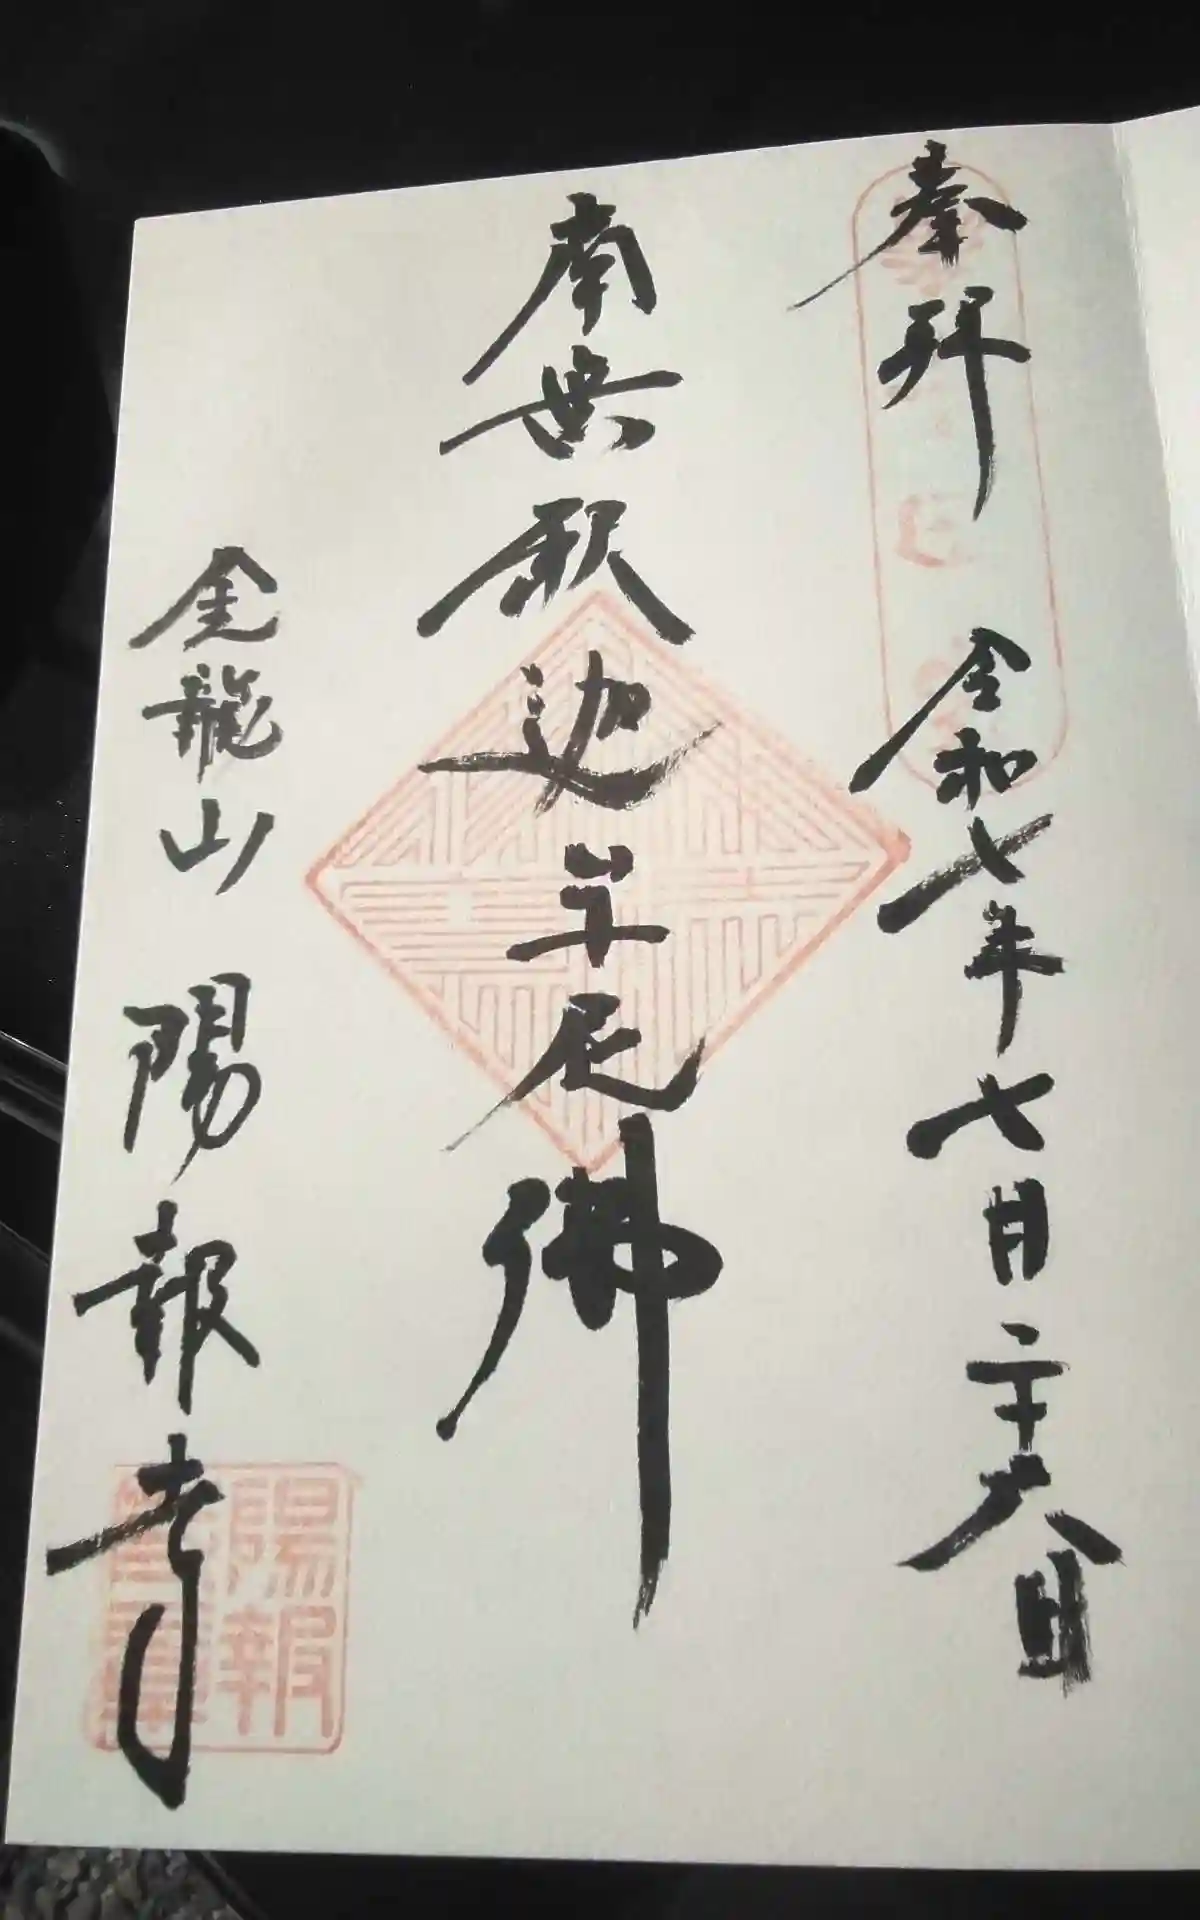 奉拝
令和七年七月二十六日
南無釈迦牟尼佛
金龍山 陽報寺
陽報